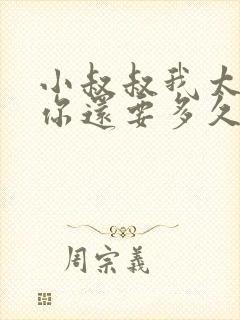 小叔叔我大
你還要多久
周宗義